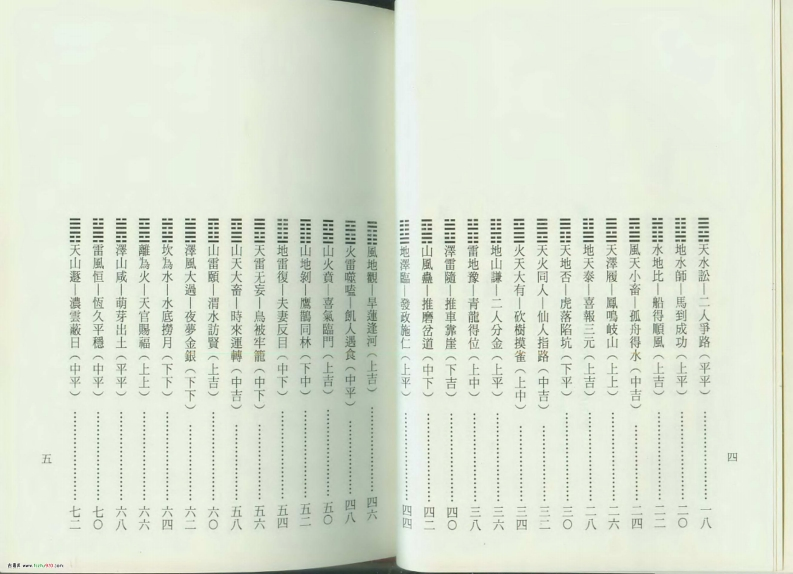 ䷅天水訟—二人爭路（平平）………………一八
䷆地水師—馬到成功（上平）………………二〇
䷇水地比—船得順風（上吉）………………二二
䷈風天小畜—孤舟得水（中吉）………………二四
䷉天澤履—鳳鳴岐山（上上）………………二六
䷊地天泰—喜報三元（上吉）………………二八
䷋天地否—虎落陷坑（下平）………………三〇
䷌天火同人—仙人指路（中吉）………………三二
䷍火天大有—砍樹摸雀（上中）………………三四
䷎地山謙—二人分金（上平）………………三六
䷏雷地豫—青龍得位（上中）………………三八
䷐澤雷隨—推車靠崖（下吉）………………四〇
䷑山風蠱—推磨岔道（中下）………………四二
䷒地澤臨—發政施仁（上平）………………四四
四
䷓風地觀—旱蓮逢河（上吉）………………四六
䷔火雷噬嗑—飢人遇食（中平）………………四八
䷕山火賁—喜氣臨門（上吉）………………五〇
䷖山地剝—鷹鵲同林（下中）………………五二
䷗地雷復—夫妻反目（中下）………………五四
䷘天雷无妄—鳥被牢籠（中下）………………五六
䷙山天大畜—時來運轉（中吉）………………五八
䷚山雷頤—渭水訪賢（上吉）………………六〇
䷛澤風大過—夜夢金銀（下下）………………六二
䷜坎為水—水底撈月（下下）………………六四
䷝離為火—天官賜福（上上）………………六六
䷞澤山咸—萌芽出土（平平）………………六八
䷟雷風恒—恆久平穩（中平）………………七〇
䷠天山遯—濃雲蔽日（中平）………………七二
五